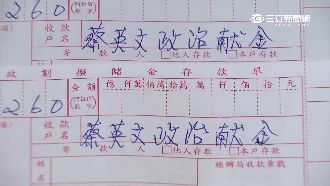 三立新聞網
260
收款
戶名
蔡英文政治献金
寄款人 □他人存款 □本戶存款
政劃撥儲金存款單
260
金額
仟佰萬拾萬萬仟佰拾元
收款
戶名
蔡英文政治献金
寄款人 □他人存款 □本戶存款
姓名
經辦局收款章戳